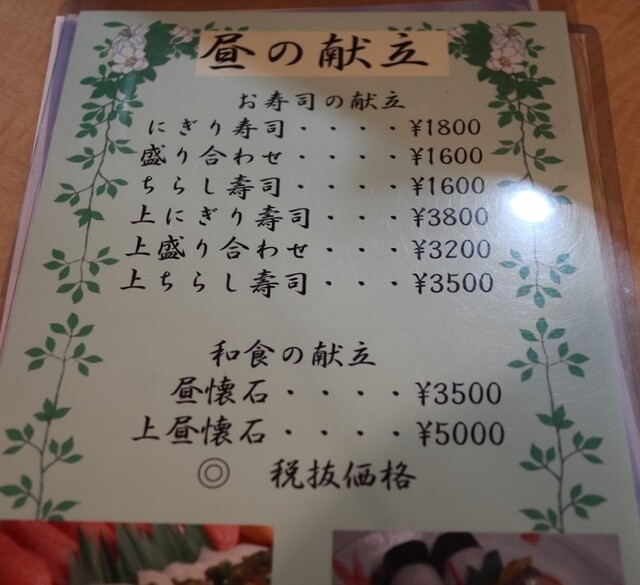 昼の献立
お寿司の献立
にぎり寿司・・・・¥1800
盛り合わせ・・・・¥1600
ちらし寿司・・・・¥1600
上にぎり寿司・・・¥3800
上盛り合わせ・・・¥3200
上ちらし寿司・・・¥3500
和食の献立
昼懐石・・・・¥3500
上昼懐石・・・・¥5000
◎ 税抜価格